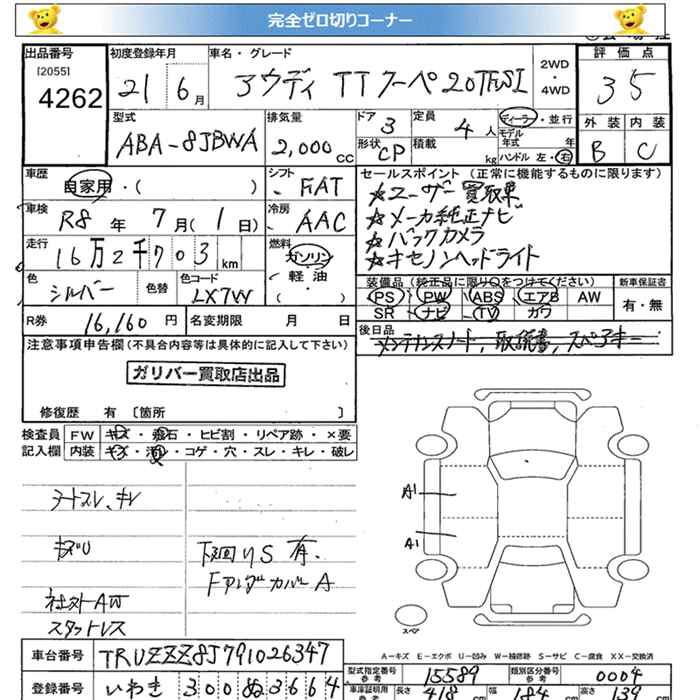 完全ゼロ切りコーナー
出品番号 初度登録年月 車名・グレード 2WD・4WD 評価点
[2055] 4262 21 6月 アウディ TT クーペ 2.0TFSI 35
型式 排気量 ドア 3 定員 4人 ディーラー・並行 外装 内装
ABA-8JBWA 2,000cc 形状 CP 積載 kg モデル年式 年 B C
ハンドル 左・右
車歴 自家用・( ) シフト FAT セールスポイント(正常に機能するものに限ります)
☆ユーザー買取車
車検 R8年 7月(1日) 冷房 AAC ☆メーカ純正ナビ
☆バックカメラ
走行 16万2千703km 燃料 ガソリン 軽油 ( ・ ) ☆キセノンヘッドライト
色 シルバー 色替 色コード LX7W 装備品(純正品に限り○をつけてください) 新車保証書
PS PW ABS エアB AW 有・無
SR ナビ TV カワ
R券 16,160円 名変期限 月 日 後日品
メンテナンスノート, 取説書, スペアキー
注意事項申告欄(不具合内容等は具体的に記入して下さい)
ガリバー買取店出品
修復歴 有〔箇所 〕
検査員 FW キズ・飛石・ヒビ割・リペア跡・×要
記入欄 内装 キズ・汚れ・コゲ・穴・スレ・キレ・破レ
シートスレ、キレ
下廻りS 有、
FアンダーカバーA
スタットレス
A1
A1
スペア
A-キズ E-エクボ U-凹み W-補修跡 S-サビ C-腐食 XX-交換済
車台番号 TRUZZZ8J791026347 型式指定番号 参考 15589 類別区分番号 参考 0004
登録番号 いわき 300 ぬ 3664 車庫証明用 参考 長さ 418cm 幅 184cm 高さ 139cm